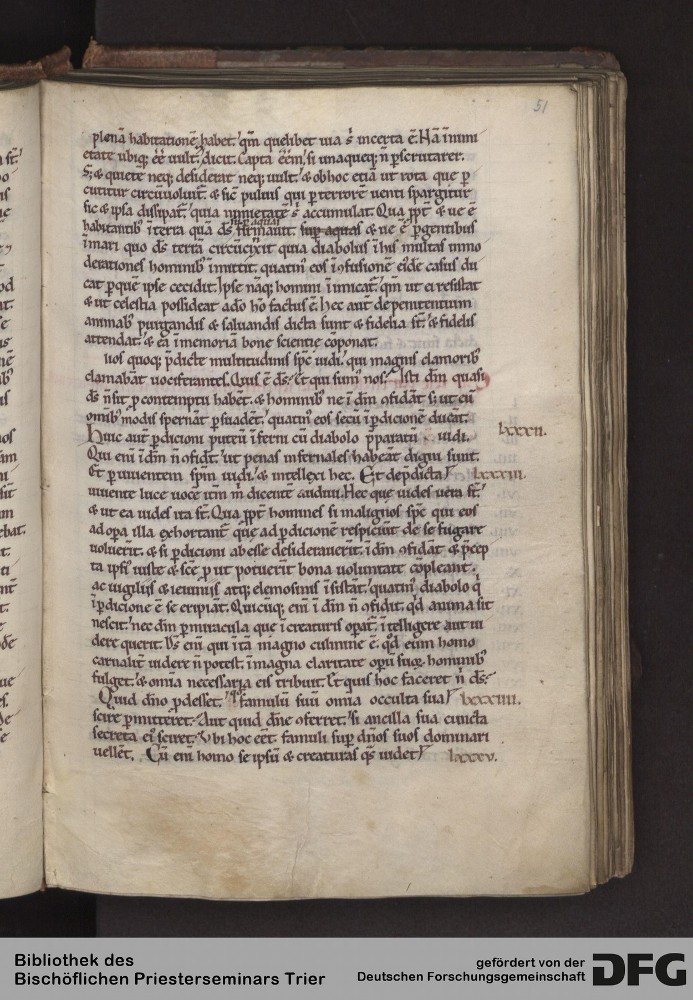 51
plenā habitationē habet. qm̄ quelibet uia s' incerta ē. Hā inimi
etate ubiq; eē uult. dicit. Capta eēm, si unaqueq; n̄ pscrutarer.
S; & quiete neq; desiderat neq; uult. & ob hoc etiā ut rota que p
cutitur circūuoluit. & sic puluis qui p terrorē uenti spargitur
sic & ipsa dissipat. quia n̄ pietatē s' accumulat. Qua ppt & ue ē
habitantib' ī terra quā ds sup aquas firmauit. sup aquas & ue ē p gentibus
ī mari quo ds terrā circūcīxit quia diabolus ī his multas inmo
derationes hominib' īmittit. quatin' eos ī ɔfusionē eidē casus du
cat p quē ipse cecidit. Ipse nāq; homini inimicat. qm̄ ut ei resistat
& ut celestia possideat ad hoc homo factus ē. Hec aut de penitentium
animab' purgandis & saluandis dicta sunt & fidelia st. & fidelis
attendat. & ea ī memoriā bone scientie cōponat.
uos quoq; p̄dicte multitudinis spc uidi. qui magnis clamorib'
clamabāt uociferantes. Quis ē ds? Et qui sum' nos? Isti dm̄ quasi
ds n̄ sit p contemptu habēt. & hominib' ne ī dm̄ ɔfidāt s; ut eū
omīb' modis spernāt psuadēt. quatin' eos secū ī pdicionē ducāt.
Hinc aut pdicioni puteū īferni cū diabolo pparatū uidi. lxxxii.
Qui eni ī dm̄ n̄ ɔfidt. ut penas infernales habeāt digni sunt.
Et p uiuentem spm̄ uidi. & intellexi hec. Et de p̄dicta lxxxiii.
uiuente luce uocē itm̄ m̄ dicentē audiui. Hec que uides uera st.
& ut ea uides ita st. Qua ppt homines si malignos spc qui eos
ad opa illa exhortant que ad pdicionē respiciūt de se fugare
uoluerīt. & si pdicioni abesse desiderauerīt. ī dm̄ ɔfidāt & p̄cep
ta ipsi' iuste & scē p ut potuerīt bona uoluntate cōpleant.
ac uigiliis & ieiuniis atq; elemosinis īsistāt. quatin' diabolo q̄
ī pdicione ē se eripiāt. Quicūq; eni ī dm̄ n̄ ɔfidit. qd anima sit
nescit. nec dm̄ p miracula que ī creaturis opat. intelligere aut ui
dere querit. Ds eni qui ī tā magno culmine ē. qd eum homo
carnalit uidere n̄ potest. ī magna claritate opū suoȝ hominib'
fulget. & omīa necessaria eis tribuit. Et quis hoc faceret n̄ ds?
Quid dn̄o pdesset. si famulū suū omia occulta sua lxxxiiii.
scire pmitteret? Aut quid dn̄e ɔferret. si ancilla sua cuncta
secreta ei' sciret? Vbi hoc eēt famuli sup dn̄os suos dominari
uellēt. Cū eni homo se ipsū & creaturas qs uidet lxxxv.
Bibliothek des
Bischöflichen Priesterseminars Trier
gefördert von der
Deutschen Forschungsgemeinschaft
DFG